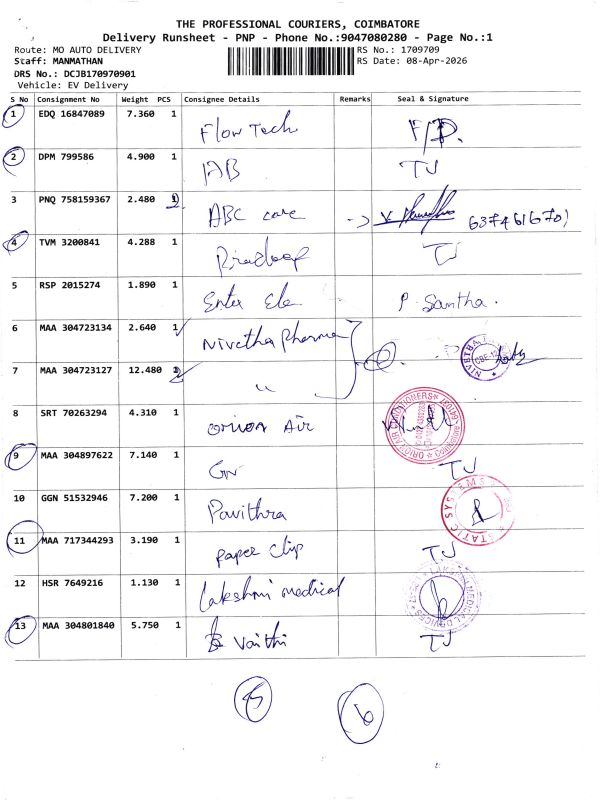 THE PROFESSIONAL COURIERS, COIMBATORE
Delivery Runsheet - PNP - Phone No.:9047080280 - Page No.:1
Route: MO AUTO DELIVERY RS No.: 1709709
Staff: MANMATHAN RS Date: 08-Apr-2026
DRS No.: DCJB170970901
Vehicle: EV Delivery
S No Consignment No Weight PCS Consignee Details Remarks Seal & Signature
1 EDQ 16847089 7.360 1 Flow Tech
2 DPM 799586 4.900 1 AB TJ
3 PNQ 758159367 2.480 1 ABC care
4 TVM 3200841 4.288 1 Pradeep TJ
5 RSP 2015274 1.890 1 Enter Ele P. Santha.
6 MAA 304723134 2.640 1 Nivetha Pharma
7 MAA 304723127 12.480 1 "
8 SRT 70263294 4.310 1 Orion Air
9 MAA 304897622 7.140 1 TJ
10 GGN 51532946 7.200 1 Pavithra STATIC SYSTEMS
11 MAA 717344293 3.190 1 Paper Clip T.J
12 HSR 7649216 1.130 1 Lakshmi medical
13 MAA 304801840 5.750 1 Vaithi TJ
5 6